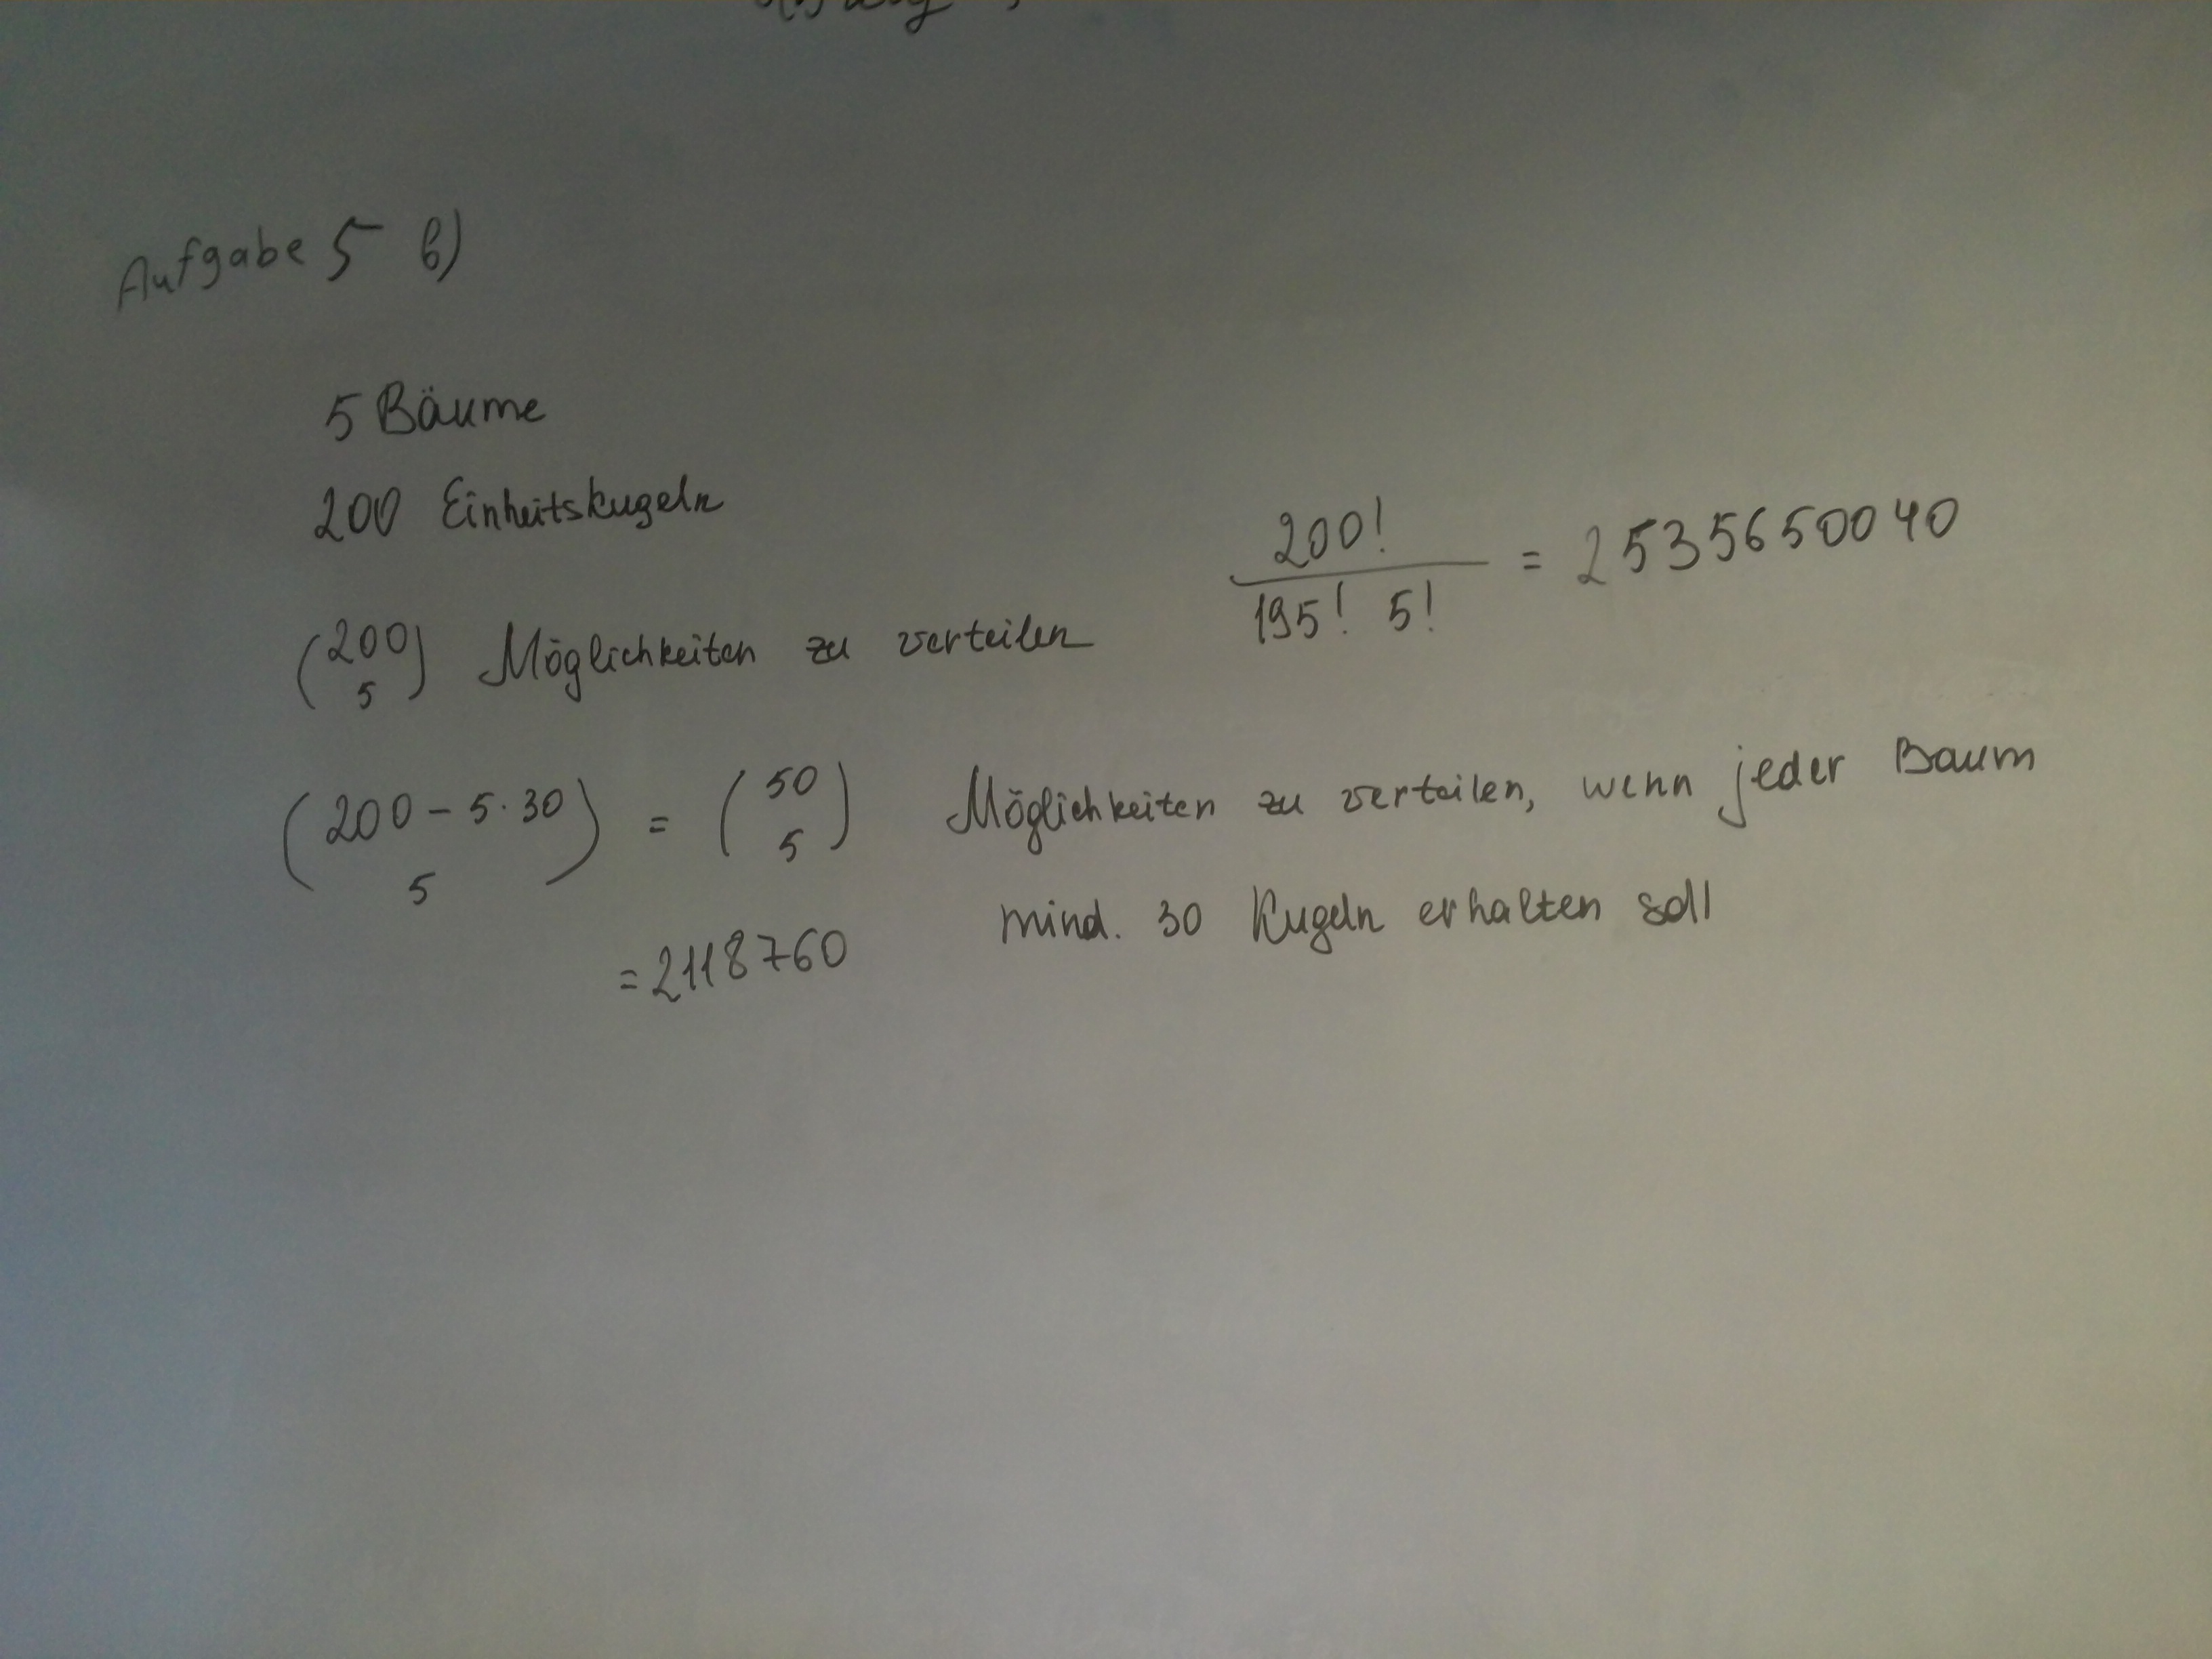 Aufgabe 5 b)
5 Bäume
200 Einheitskugeln
(200 5) Möglichkeiten zu verteilen
200! / 195! 5! = 2535650040
(200 - 5·30 5) = (50 5) Möglichkeiten zu verteilen, wenn jeder Baum
mind. 30 Kugeln erhalten soll
= 2118760